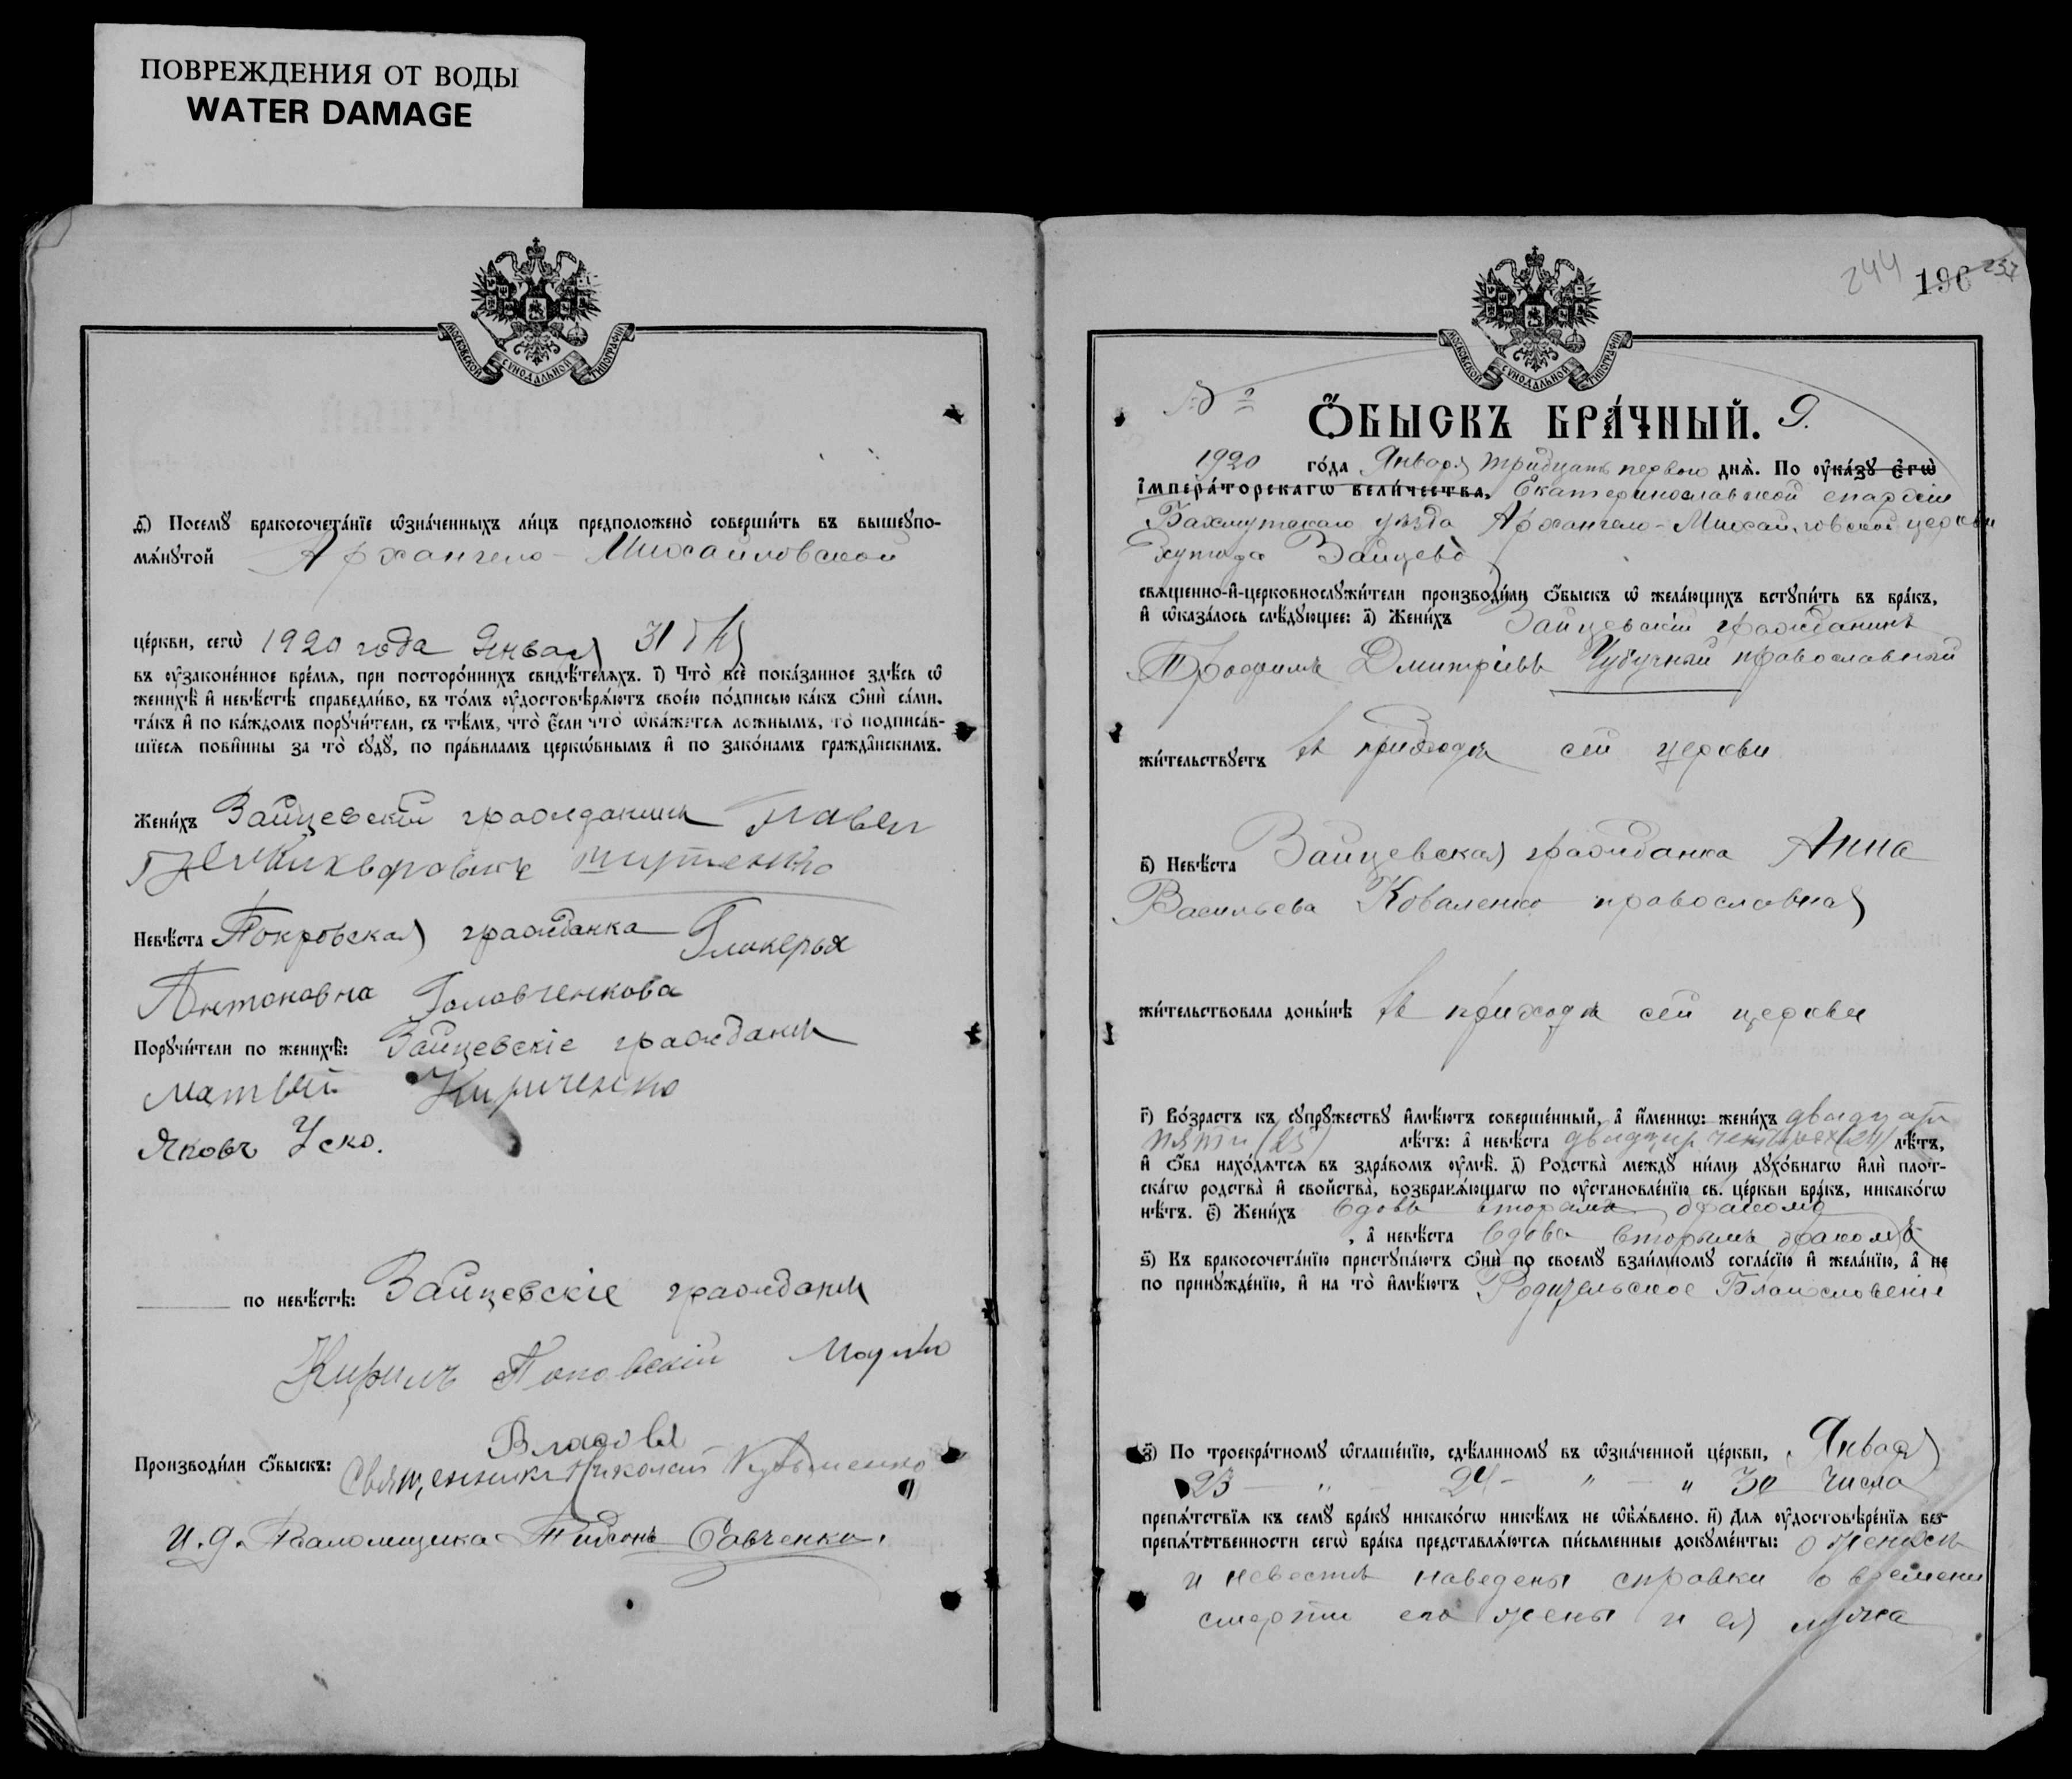 ПОВРЕЖДЕНИЯ ОТ ВОДЫ
WATER DAMAGE
МОСКОВСКОЙ СѴНОДАЛЬНОЙ ТИПОГРАФІИ
ѳ҃) Посемꙋ бракосочета́нїе ѡ҆зна́ченныхъ ли́цъ предположено̀ соверши́ть въ вышеꙋпо-
мѧ́нꙋтой Архангело-Михайловской
це́ркви, сегѡ̀ 1920 года Января 31 дня
въ ᲂу҆зако́ненное вре́мѧ, при посторо́ннихъ свидѣ́телѧхъ. і҃) Что̀ всѐ пока́занное здѣ́сь ѡ҆
женихѣ̀ и҆ невѣ́стѣ справедли́во, въ то́мъ ᲂу҆достовѣрѧ́ютъ свое́ю по́дписью ка́къ ѻ҆нѝ са́ми,
та́къ и҆ по ка́ждомъ порꙋчи́тели, съ тѣ́мъ, что̀ є҆́сли что̀ ѡ҆ка́жетсѧ ло́жнымъ, то̀ подписа́в-
шїесѧ пови́нны за то̀ сꙋдꙋ̀, по пра́виламъ церкѡ́внымъ и҆ по зако́намъ гражда́нскимъ.
Жени́хъ Зайцевскій гражданинъ Павел
Невѣ́ста Покровская гражданка Гликерья
Антоновна Головченкова
Порꙋчи́тели по женихѣ̀: Зайцевскіе граждани
Матвѣй Кириченко
Яковъ Уско.
по невѣ́стѣ: Зайцевскіе граждани
Кирилъ Поповскій
Власовъ
Производи́ли ѻ҆́быскъ: Священникъ Николай Кузьменко
И. д. Псаломщика Савченко.
МОСКОВСКОЙ СѴНОДАЛЬНОЙ ТИПОГРАФІИ
244 196 237
№ 9
Ѻ҆́БЫСКЪ БРА́ЧНЫЙ. 9.
1920 го́да Января тридцать первого днѧ̀. По ᲂу҆ка́зꙋ є҆гѡ̀
і҆мпера́торскагѡ вели́чества, Екатеринославской епархіи
Бахмутскаго уѣзда Архангело-Михайловской церкви
хутора Зайцево
свѧще́нно-и҆-церковнослꙋжи́тели производи́ли ѻ҆́быскъ ѡ҆ жела́ющихъ встꙋпи́ть въ бра́къ,
и҆ ѡ҆каза́лось слѣ́дꙋющее: а҃) Жени́хъ Зайцевскій гражданинъ
Трофимъ Дмитріевъ Чубучный православный
жи́тельствꙋетъ въ приходѣ сей церкви
в҃) Невѣ́ста Зайцевская гражданка Анна
Васильева Коваленко православная
жи́тельствовала доны́нѣ въ приходѣ сей церкви
г҃) Во́зрастъ къ сꙋпрꙋ́жествꙋ и҆мѣ́ютъ соверше́нный, а҆ и҆́меннѡ: жени́хъ двадцати
пяти (25) лѣ́тъ: а҆ невѣ́ста двадцати четырехъ (24) лѣ́тъ,
и҆ ѻ҆́ба нахо́дѧтсѧ въ здра́вомъ ᲂу҆мѣ̀. д҃) Родства̀ междꙋ ни́ми дꙋхо́внагѡ и҆лѝ плот-
ска́гѡ родства̀ и҆ свойства̀, возбранѧ́ющагѡ по ᲂу҆становле́нїю св. це́ркви бра́къ, никако́гѡ
нѣ́тъ. є҃) Жени́хъ вдовъ вторымъ бракомъ
, а҆ невѣ́ста вдова вторымъ бракомъ
ѕ҃) Къ бракосочета́нїю пристꙋпа́ютъ ѻ҆нѝ по своемꙋ̀ взаи́мномꙋ согла́сїю и҆ жела́нїю, а҆ не
по принꙋжде́нїю, и҆ на то̀ и҆мѣ́ютъ Родительское Благословеніе
з҃) По троекра́тномꙋ ѡ҆глаше́нїю, сдѣ́ланномꙋ въ ѡ҆зна́ченной це́ркви, Января
23 — „ — 24 — „ — „ 30 числа
препѧ́тствїѧ къ семꙋ̀ бра́кꙋ никако́гѡ никѣ́мъ не ѡ҆б̾ѧ́влено. и҃) Длѧ ᲂу҆достовѣре́нїѧ без-
препѧ́тственности сегѡ̀ бра́ка представлѧ́ютсѧ пи́сьменные докꙋме́нты: о женихѣ
и невестѣ наведены справки о времени
смерти его жены и ея мужа